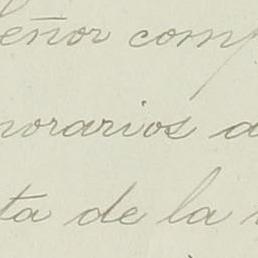 eñor comp
norarios d
ta de la